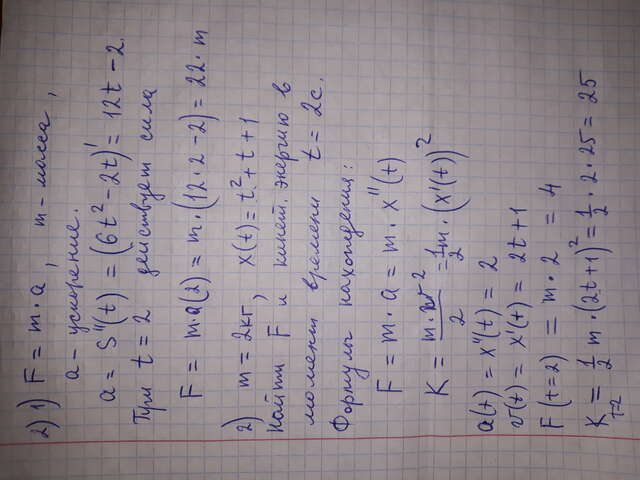 2) 1) F = m·a, m - масса,
a - ускорение.
a = S''(t) = (6t² - 2t)' = 12t - 2.
При t = 2 действует сила
F = m·a(2) = m·(12·2 - 2) = 22·m
2) m = 2кг, x(t) = t² + t + 1
Найти F и кинет. энергию в
момент времени t = 2с.
Формулы нахождения:
F = m·a = m·x''(t)
K = m·v²/2 = 1/2 m·(x'(t))²
a(t) = x''(t) = 2
v(t) = x'(t) = 2t + 1
F(t=2) = m·2 = 4
K t=2 = 1/2 m·(2t+1)² = 1/2·2·25 = 25